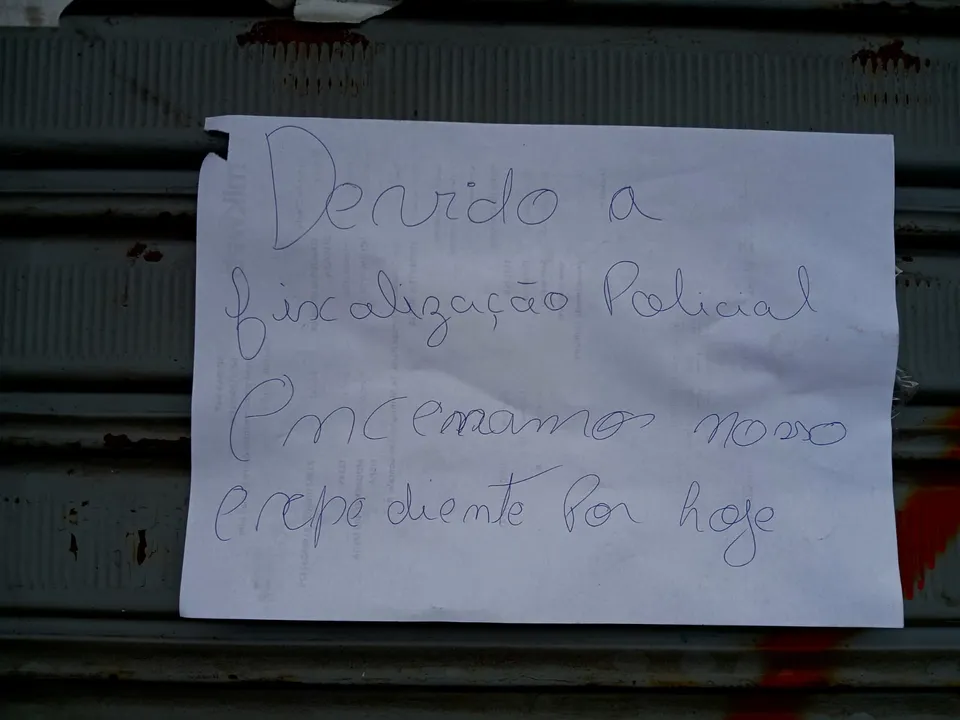 Devido a
fiscalização Policial
Encerramos nosso
expediente Por hoje